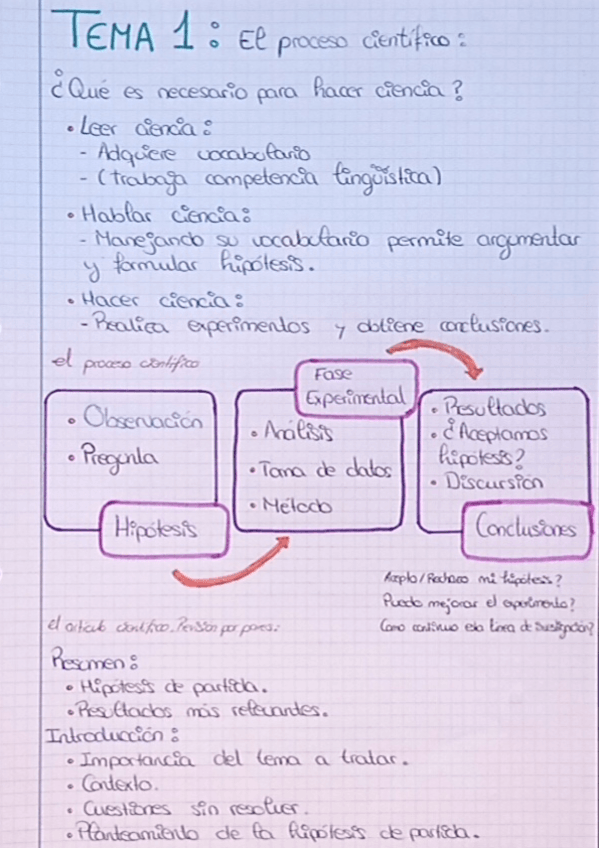 TEMA 1: El proceso científico:
¿Qué es necesario para hacer ciencia?
• Leer ciencia:
- Adquiere vocabulario
- (trabaja competencia lingüística)
• Hablar ciencia:
- Manejando su vocabulario permite argumentar
y formular hipótesis.
• Hacer ciencia:
- Realiza experimentos y obtiene conclusiones.
el proceso científico
• Observación
• Pregunta
Hipótesis
Fase
Experimental
• Análisis
• Toma de datos
• Método
• Resultados
• ¿Aceptamos
hipótesis?
• Discursión
Conclusiones
Acepto/Rechazo mi hipótesis?
Puedo mejorar el experimento?
Como continuo esta línea de
el artículo científico. Revisión por pares:
Resumen:
• Hipótesis de partida.
• Resultados más relevantes.
Introducción:
• Importancia del tema a tratar.
• Contexto.
• Cuestiones sin resolver.
• Planteamiento de la hipótesis de partida.